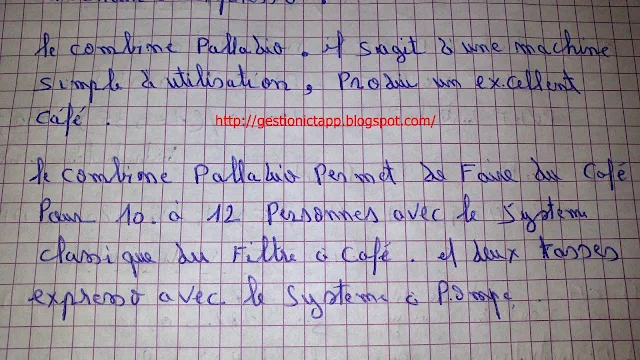 le combiné Palladio. il sagit d'une machine
simple d'utilisation, Produit un excellent
Café.
http://gestionictapp.blogspot.com/
le combiné Palladio Permet de Faire du Café
Pour 10. à 12 Personnes avec le System
classique du Filtre à Café. et deux tasses
expresso avec le Systeme à Pompe.